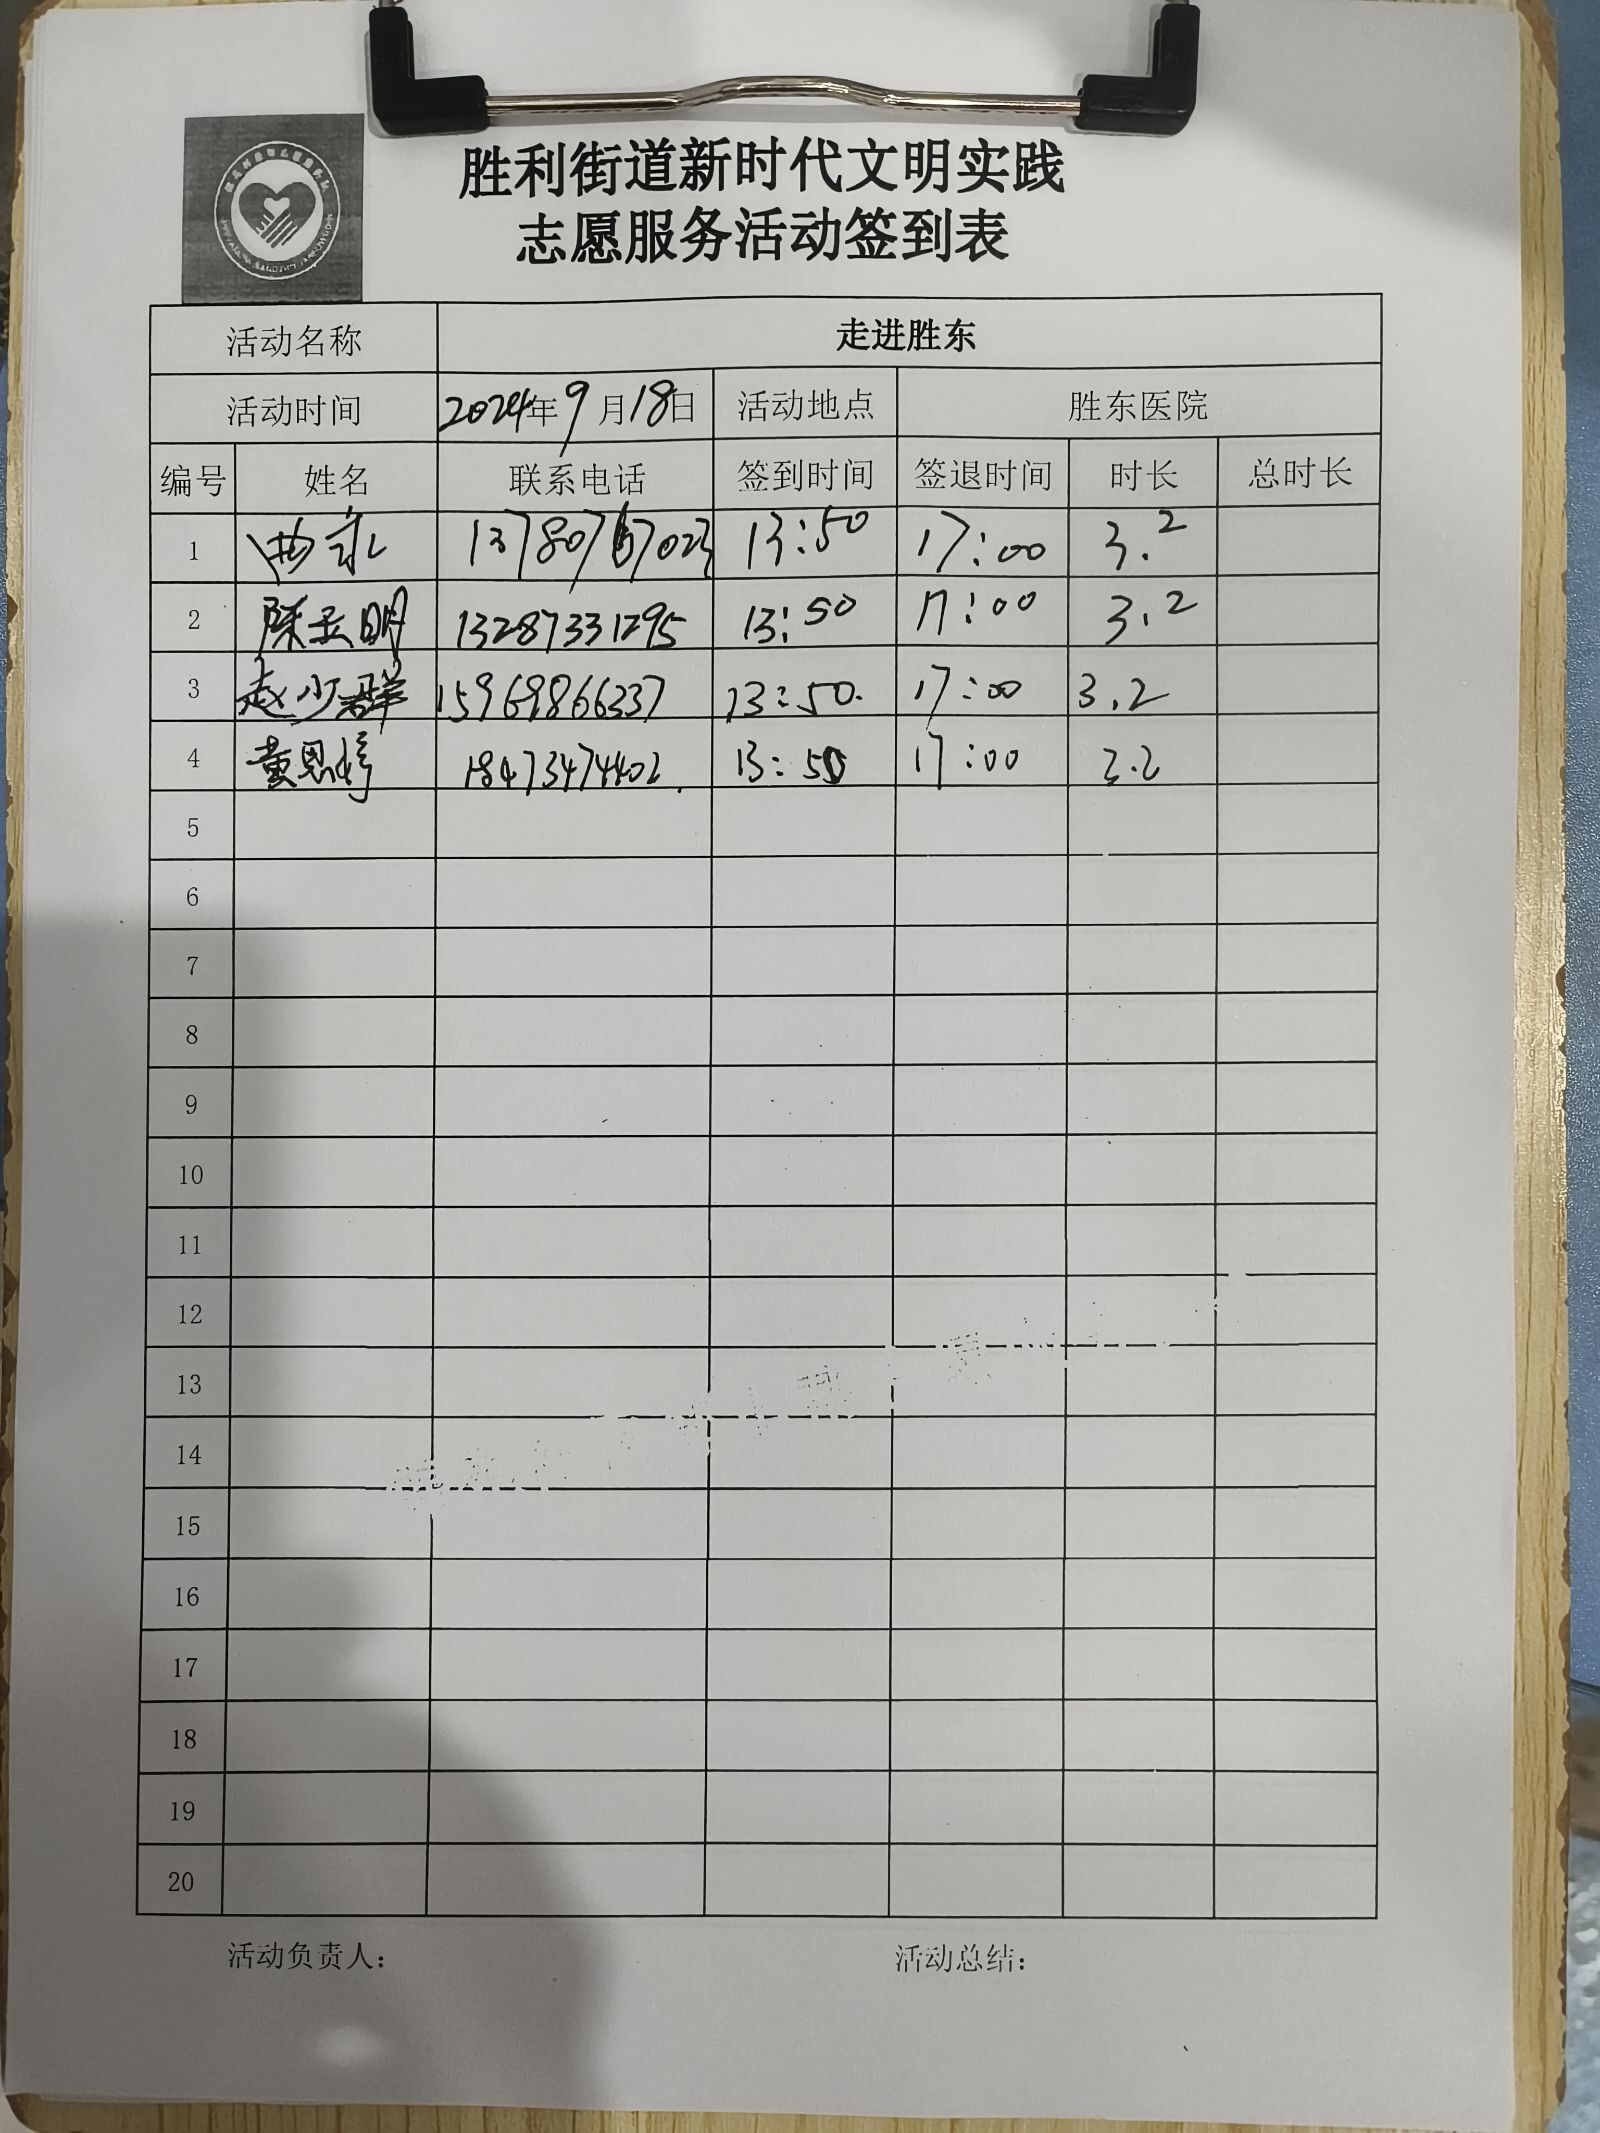 胜利街道新时代文明实践
志愿服务活动签到表
活动名称 走进胜东
活动时间 2024年9月18日 活动地点 胜东医院
编号 姓名 联系电话 签到时间 签退时间 时长 总时长
1 13780767023 13:50 17:00 3.2
2 陈孟明 13287331295 13:50 17:00 3.2
3 赵少群 15969866337 13:50. 17:00 3.2
4 黄恩婷 18473474402. 13:50 17:00 3.2
5
6
7
8
9
10
11
12
13
14
15
16
17
18
19
20
活动负责人： 活动总结：